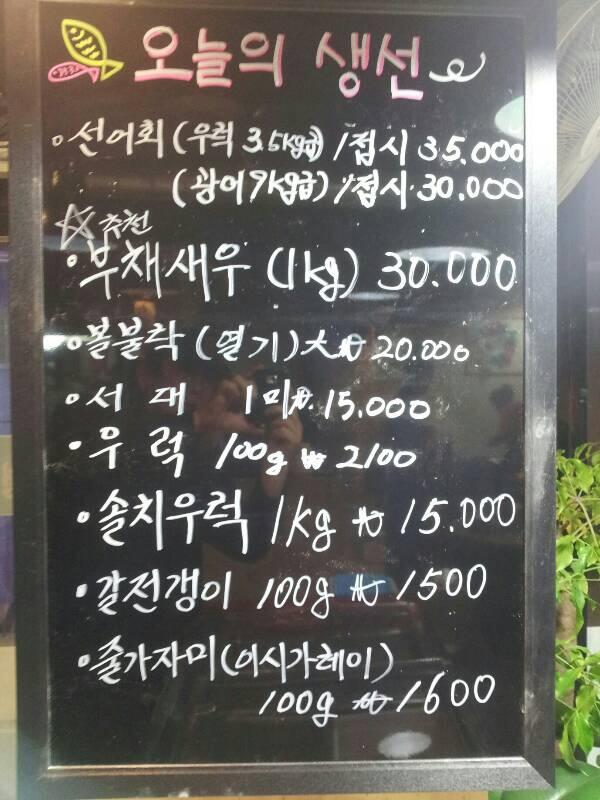 오늘의 생선
· 선어회 (우럭 3.5kg급) 1접시 35.000
(광어 9kg급) 1접시 30.000
☆ 추천
· 부채새우 (1kg) 30.000
· 볼불락 (열기) 大 ₩ 20.000
· 서대 1미 ₩ 15.000
· 우럭 100g ₩ 2100
· 솔치우럭 1kg ₩ 15.000
· 갈전갱이 100g ₩ 1500
· 줄가자미 (이시가레이)
100g ₩ 1600